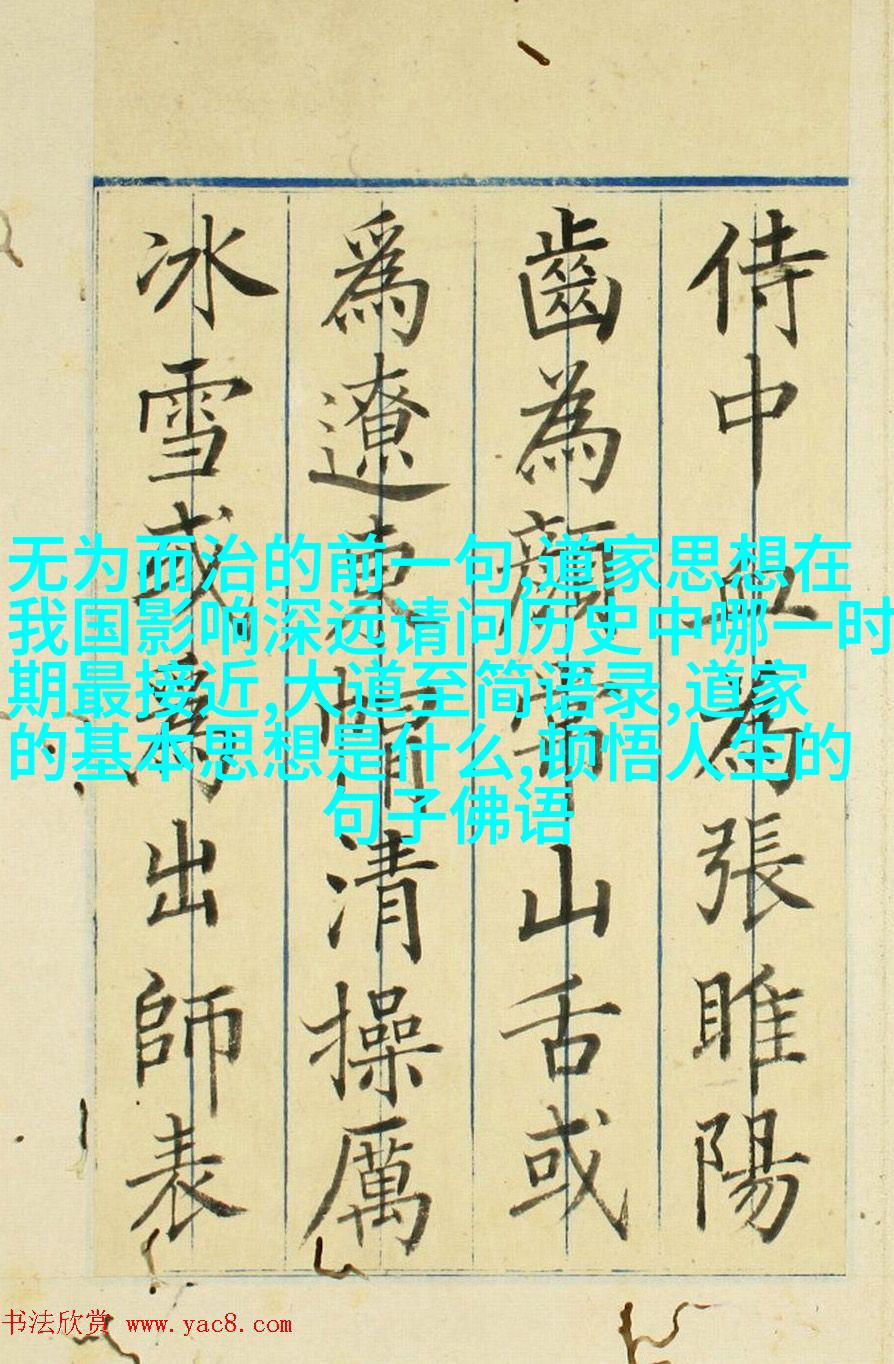 侍中血為張睢陽
齒為顏常山舌或
爲遼東帽清操厲
冰雪或爲出師表
无为而治的前一句,道家思想在
我国影响深远请问历史中哪一时
期最接近,大道至简语录,道家
的基本思想是什么,顿悟人生的
句子佛语
书法欣赏 www.yac8.com